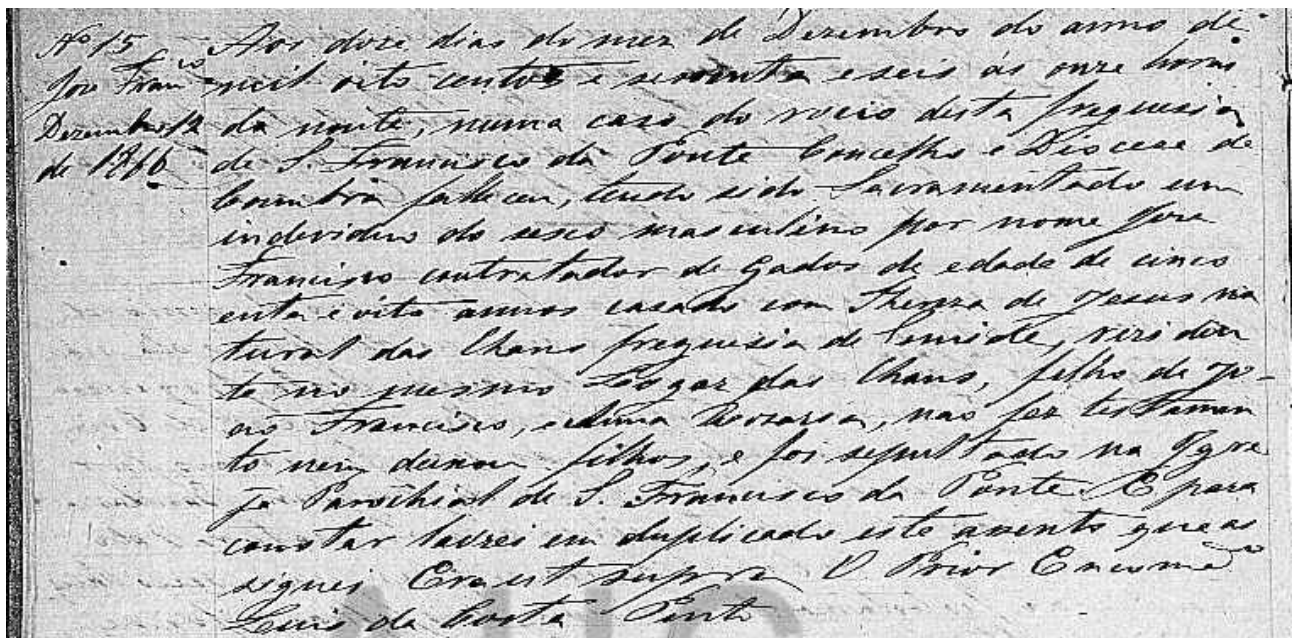 Nº 15
José Franco
Dezembro 12
de 1866
Aos doze dias do mez de Dezembro do anno de
mil oito centos e sessenta e seis ás onze horas
da noute, numa casa do rocio desta freguesia
de S. Francisco da Ponte Concelho e Diocese de
Coimbra falleceu, tendo sido Sacramentado um
individuo do sexo masculino por nome José
Francisco contratador de Gados de edade de cinco
enta e oito annos casado com Thereza de Jesus na
tural das Chans freguesia de Semide, residen
te no mesmo Logar das Chans, filho de Jo-
sé Francisco, e Anna Rozaria, nao fez testamen
to nem deixou filhos, e foi sepultado na Igre
ja Parochial de S. Francisco da Ponte. E para
constar lavrei em duplicado este assento que as
signei Era ut supra O Prior Encomdo
Luis da Costa